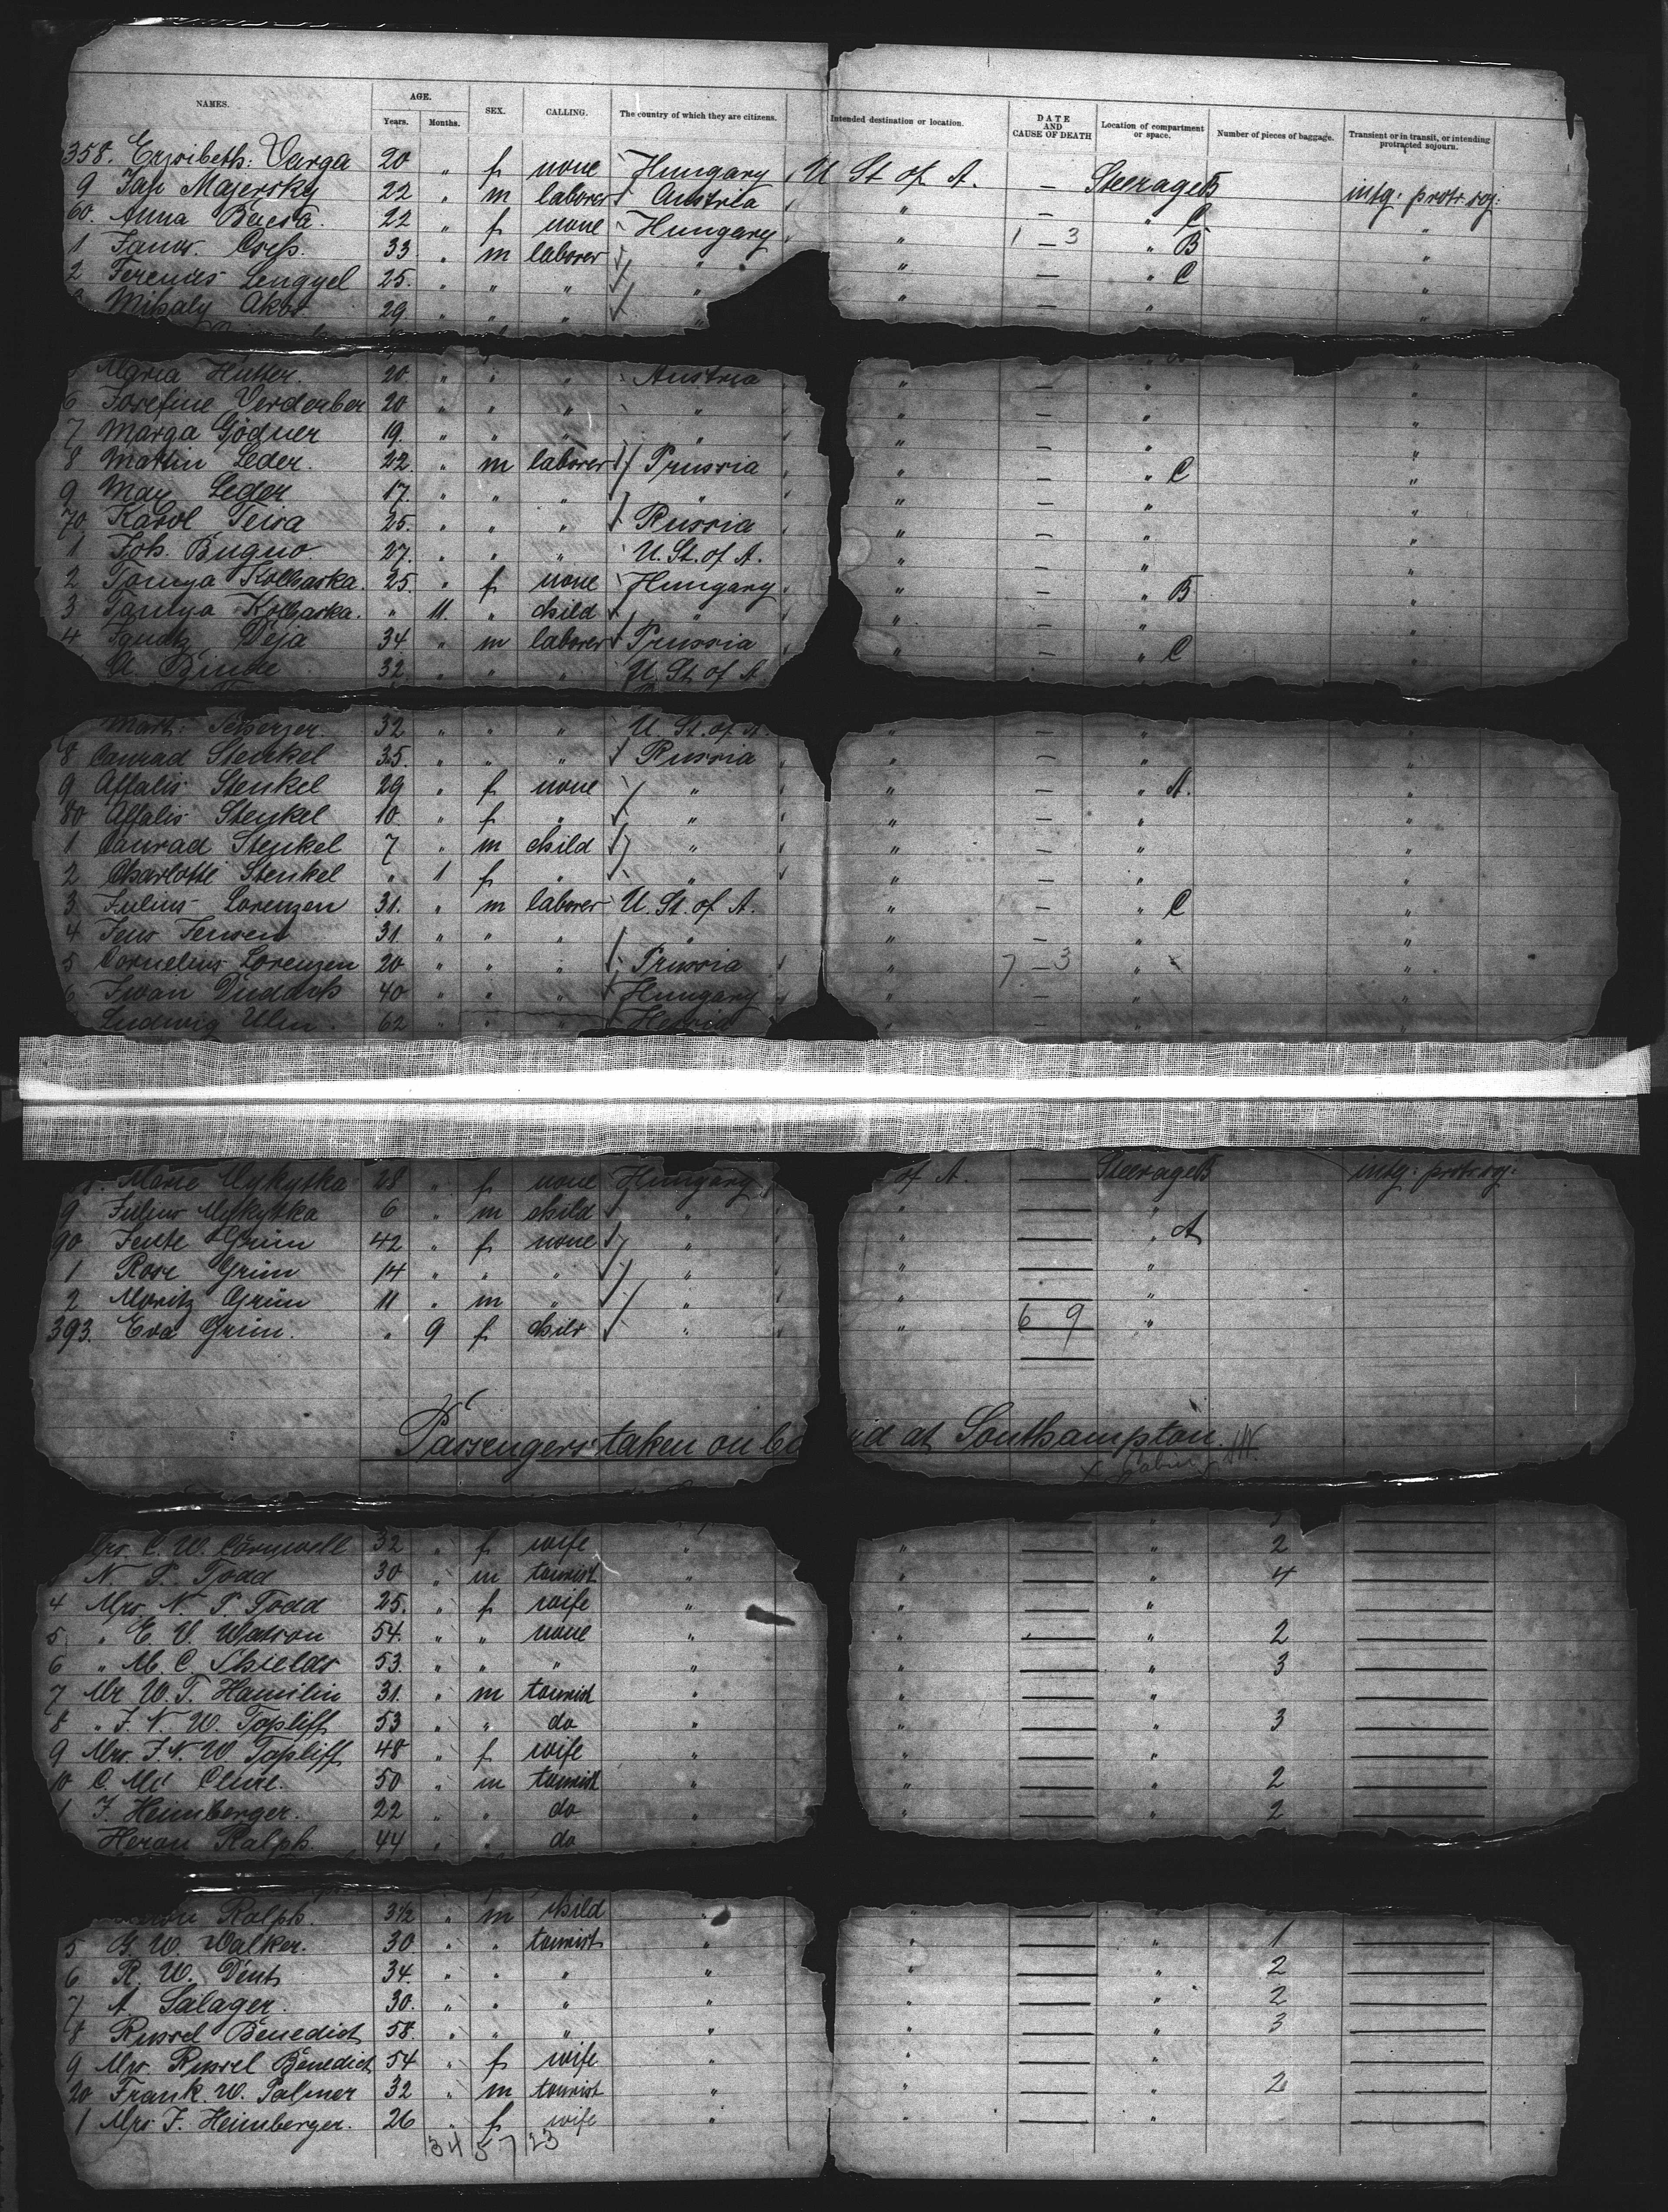 NAMES. AGE. Years. Months. SEX. CALLING. The country of which they are citizens. Intended destination or location. DATE AND CAUSE OF DEATH Location of compartment or space. Number of pieces of baggage. Transient or in transit, or intending protracted sojourn.
358. Erzsibeth: Varga 20 " f none Hungary U St of A. — Steerage B intg: protr. soj:
9 Jan Majersky 22 " m laborer Austria " — " C "
60. Anna 22 " f none Hungary " 1 — 3 " B "
1 Janos 33 " m laborer " " — " C "
2 Ferencz Lengyel 25. " " " " " — " "
3 Mihaly Akos 29. " " " "
Maria Hutter. 20. " " " Austria " — " "
6 Josefine Verderber 20 " " " " " — " "
7 Marga Gödner 19. " " " " " — " "
8 Martin Leder. 22. " m laborer Prussia " — " C "
9 Max Leder 17. " " " " " — " "
70 Karol 25. " " " Russia " — " "
1 Joh. Bugno. 27. " " " U. St. of A. " — " "
2 Kolbaska. 25. " f none Hungary " — " B "
3 Kolbaska. " 11. " child " " — " "
4 Deja 34 " m laborer Prussia " — " C "
A. 32. " " " U. St. of A.
Mart: 32 " " " U. St. of A. " — " "
8 Conrad Stenkel 35. " " " Russia " — " "
9 Affalis Stenkel 29 " f none " " — " A. "
80 Affalis Stenkel 10. " f " " " — " "
1 Conrad Stenkel 7 " m child " " — " "
2 Charlotte Stenkel " 1 f " " " — " "
3 Julius Lorenzen 31. " m laborer U. St. of A. " — " C "
4 Jens Jensen 31. " " " " " — " "
5 Cornelius Lorenzen 20 " " " Prussia " 7 — 3 " "
6 Iwan 40 " " " Hungary " — " "
Ludwig Ulm. 62 " " " — " "
Marie 28 " f none Hungary of A. — Steerage B intg: protr. soj:
9 Julius 6 " m child " " — "
90 Grün 42 " f none " " — " A
1 Rosa Grün 14 " " " " " — "
2 Moritz Grün 11 " m " " " — "
393. Eva Grün. " 9 f child " " 6 9 "
Passengers taken on board at Southampton.
Mrs. C. W. Cornwell 32 " f wife " " — " 2 —
N. P. Todd 30 " m tourist " " — " 4 —
4 Mrs. N. P. Todd 25. " f wife " " — " —
5 " E. V. Watson 54. " " none " " — " 2 —
6 " M. C. Shields 53. " " " " " — " 3 —
7 Mr W. T. Hamilin 31. " m tourist " " — " —
8 " J. N. W. Topliff 53 " " do " " — " 3 —
9 Mrs. J. N. W. Topliff 48 " f wife " " — " —
10 C. Mc Clure. 50 " m tourist " " — " 2 —
1 J. Heimberger. 22 " " do " " — " 2 —
Heron Ralph. 44 " " do "
Ralph. 3 1/2 " m child " " — " —
5 G. W. Walker. 30 " " tourist " " — " 1 —
6 R. W. Dent 34. " " " " " — " 2 —
7 A. Salager. 30. " " " " " — " 2 —
8 Russel Benedict 58. " " " " " — " 3 —
9 Mrs. Russel Benedict 54 " f wife " " — " —
20 Frank. W. Palmer 32 " m tourist " " — " 2 —
1 Mrs. J. Heimberger. 26 " f wife " " — " —
34 57 23